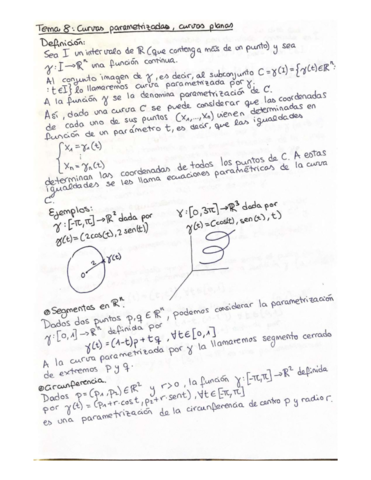 Tema 8: Curvas parametrizadas, curvas planas
Definición:
Sea I un intervalo de ℝ (que contenga más de un punto) y sea
γ: I → ℝⁿ una función continua.
Al conjunto imagen de γ, es decir, al subconjunto C = γ(I) = {γ(t) ∈ ℝⁿ:
: t ∈ I} lo llamaremos curva parametrizada por γ.
A la función γ se la denomina parametrización de C.
Así, dada una curva C se puede considerar que las coordenadas
de cada uno de sus puntos (x₁,…,xₙ) vienen determinadas en
función de un parámetro t, es decir, que las igualdades
{ x₁ = γ₁(t)
⋮
xₙ = γₙ(t)
determinan las coordenadas de todos los puntos de C. A estas
igualdades se les llama ecuaciones paramétricas de la curva
C.
Ejemplos:
γ: [-π,π] → ℝ² dada por
γ(t) = (2cos(t), 2sen(t))
γ: [0,3π] → ℝ³ dada por
γ(t) = (cos(t), sen(t), t)
2
γ(t)
Segmentos en ℝⁿ.
Dados dos puntos p,q ∈ ℝⁿ, podemos considerar la parametrización
γ: [0,1] → ℝⁿ definida por
γ(t) = (1-t)p + tq, ∀t ∈ [0,1]
A la curva parametrizada por γ la llamaremos segmento cerrado
de extremos p y q.
Circunferencia.
Dados p = (p₁,p₂) ∈ ℝ² y r>0, la función γ: [-π,π] → ℝ² definida
por γ(t) = (p₁+r·cost, p₂+r·sent), ∀t ∈ [-π,π]
es una parametrización de la circunferencia de centro p y radio r.